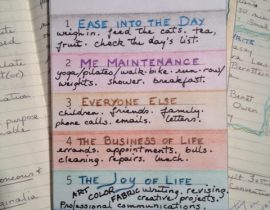 1 EASE INTO THE DAY
weigh in. feed the cats. tea,
fruit. check the day's list.
2 ME MAINTENANCE
yoga/pilates/walk. bike. run. row/
weights. shower. breakfast.
3 EVERYONE ELSE
children. friends. family.
phone calls. emails. letters.
4 THE BUSINESS OF LIFE
errands. appointments. bills.
cleaning. repairs. lunch.
5 THE JOY OF LIFE
ART COLOR FABRIC writing. revising.
creative projects.
Professional communications